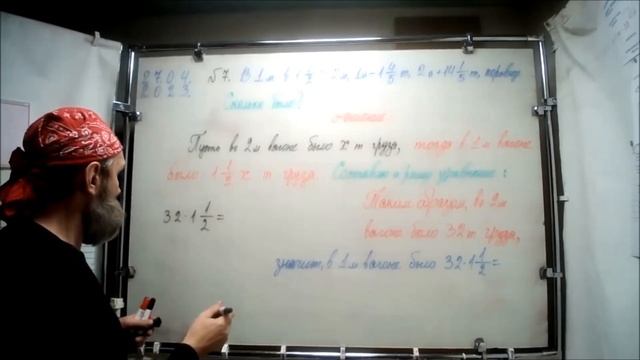 27.04.
2023.
№ 7. В 1 м в 1 1/2 > 2 м, 1 м - 1 4/5 т, 2 м + 14 1/5 т, поровну.
Сколько было?
решение
Пусть во 2 м вагоне было x т груза, тогда в 1 м вагоне
было 1 1/2 x т груза. Составлю и решу уравнение:
Таким образом, во 2 м
вагоне было 32 т груза,
значит, в 1 м вагоне было 32 · 1 1/2 =
32 · 1 1/2 =